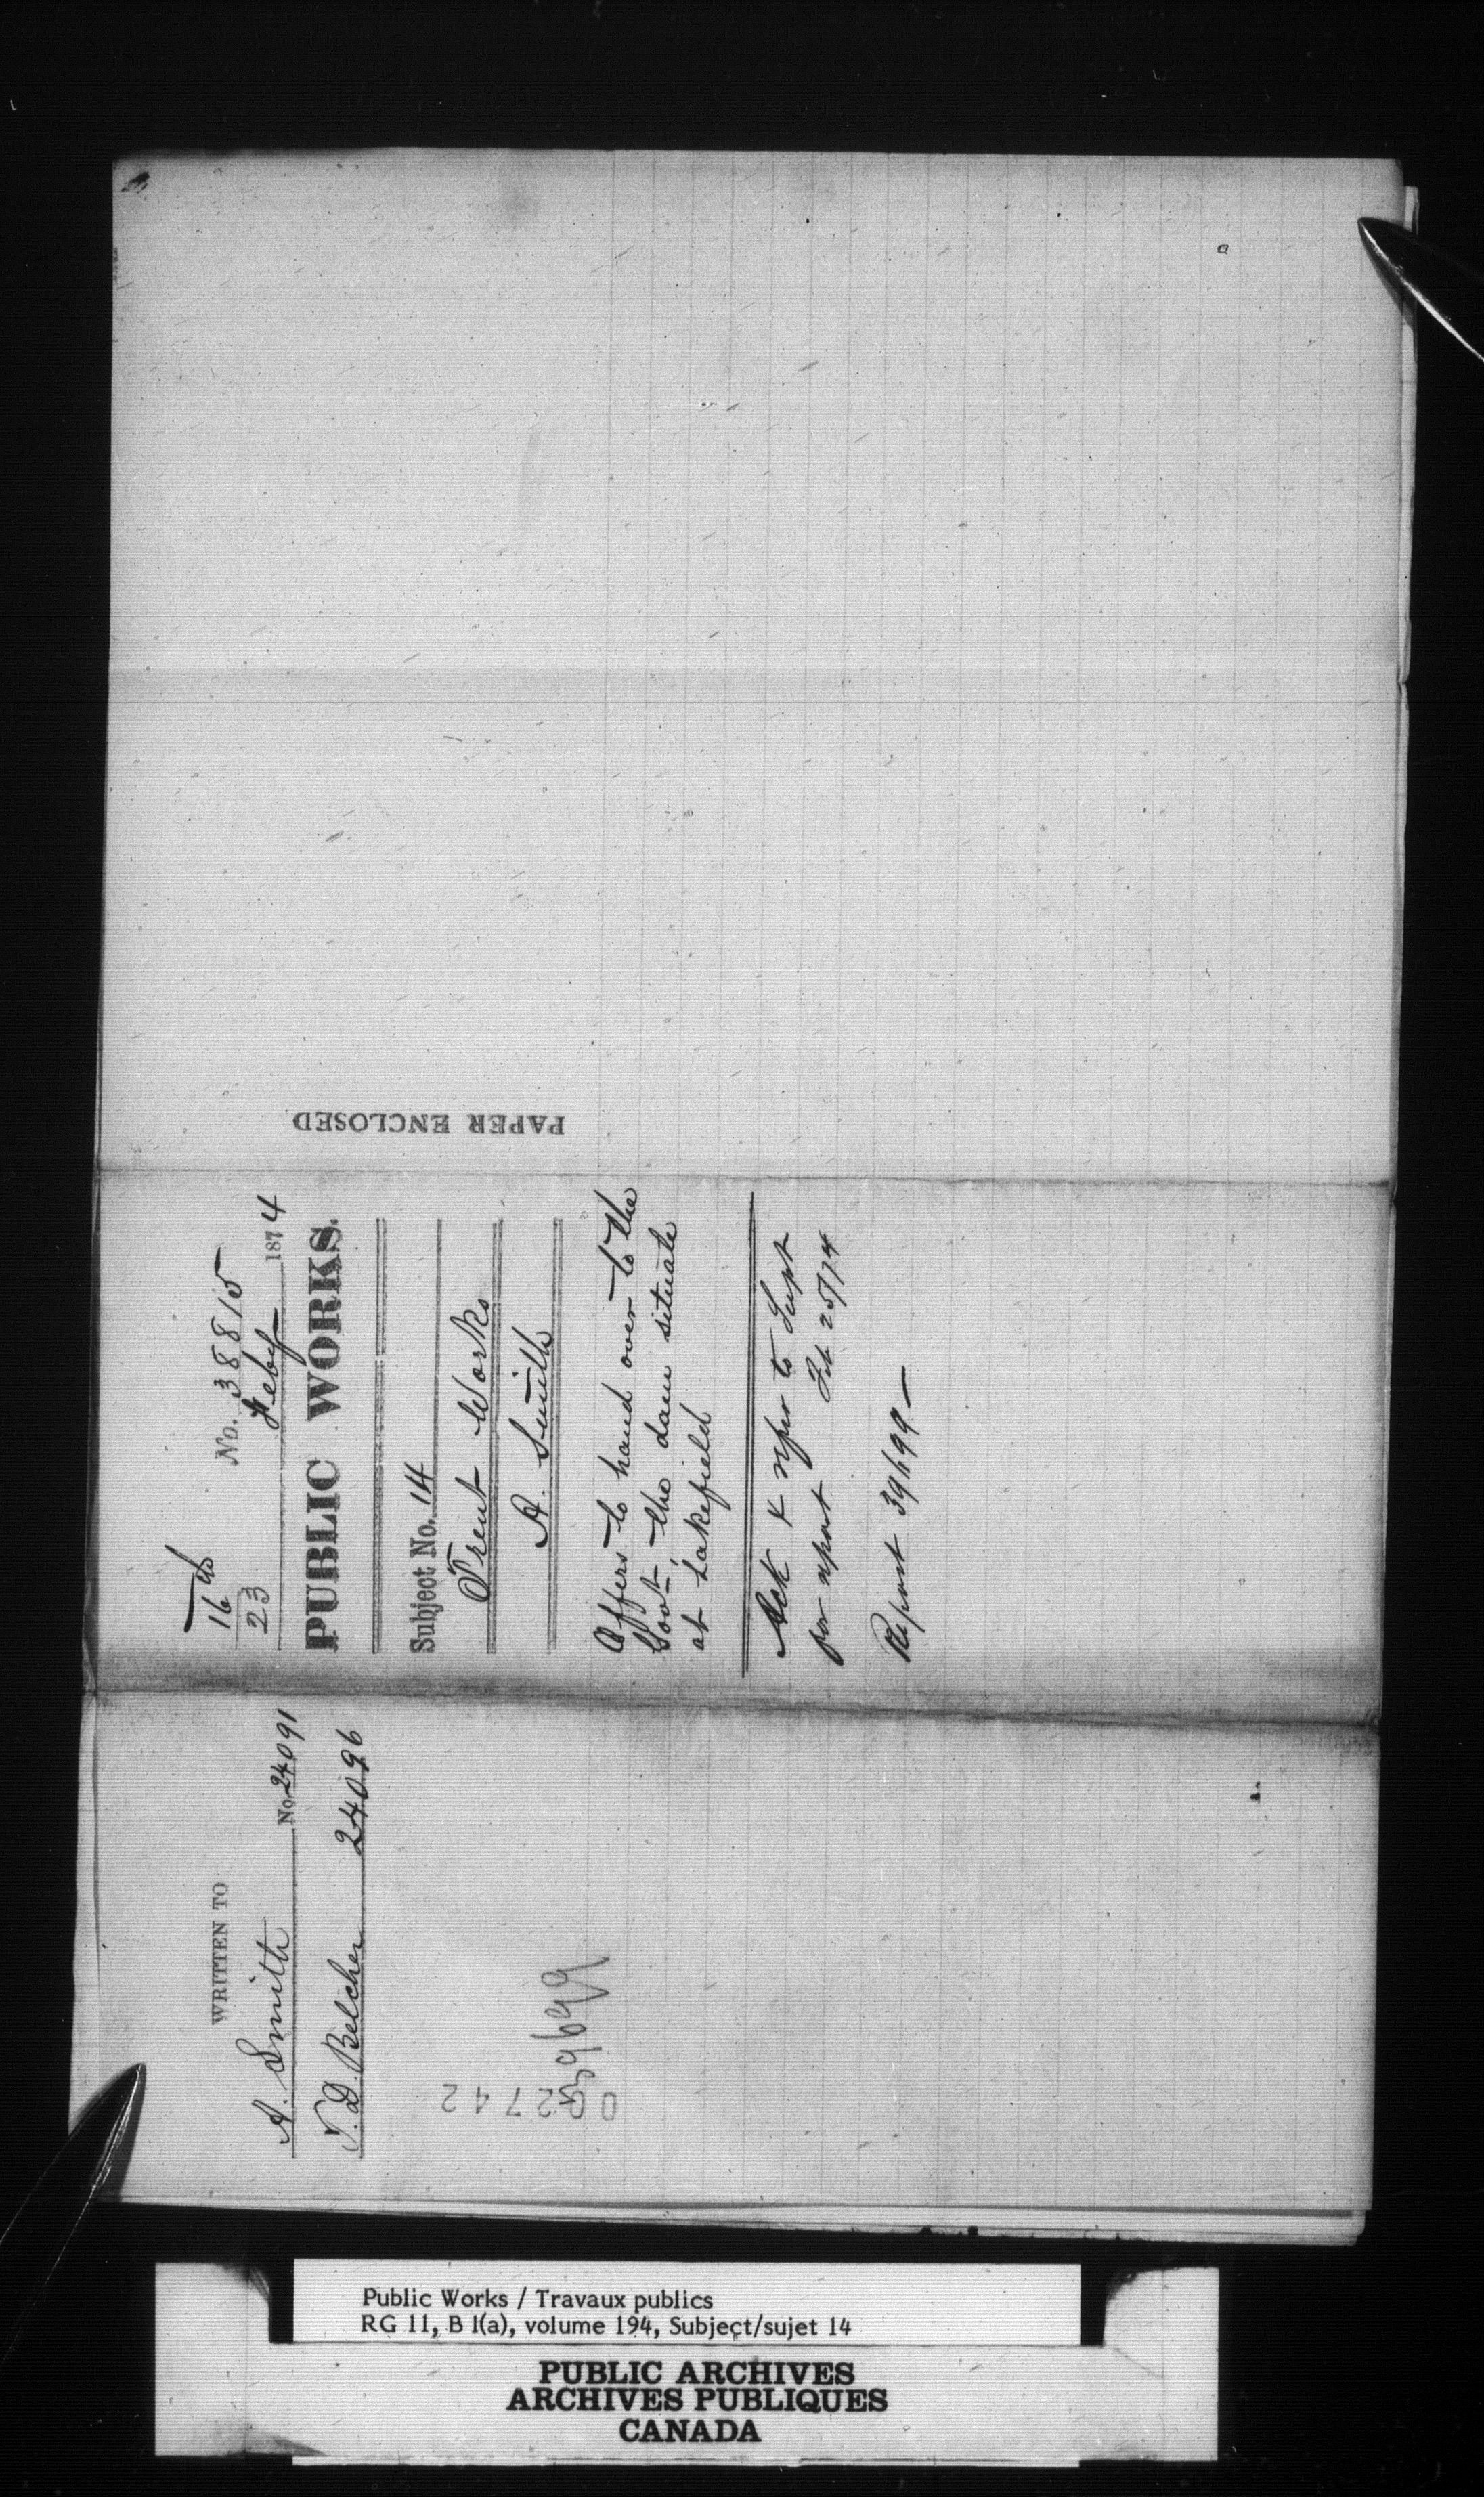 16th
23
No. 38815
Feby 1874
PUBLIC WORKS.
Subject No. 14
Trent Works
A. Smith
Offers to hand over to the
Govt. the dam situate
at Lakefield
Ack & refer to Supt
for report Feb 25/74
Report 39699
PAPER ENCLOSED
WRITTEN TO
A. Smith No. 24091
T. D. Belcher 24096
39699
002742
Public Works / Travaux publics
RG 11, B 1(a), volume 194, Subject/sujet 14
PUBLIC ARCHIVES
ARCHIVES PUBLIQUES
CANADA